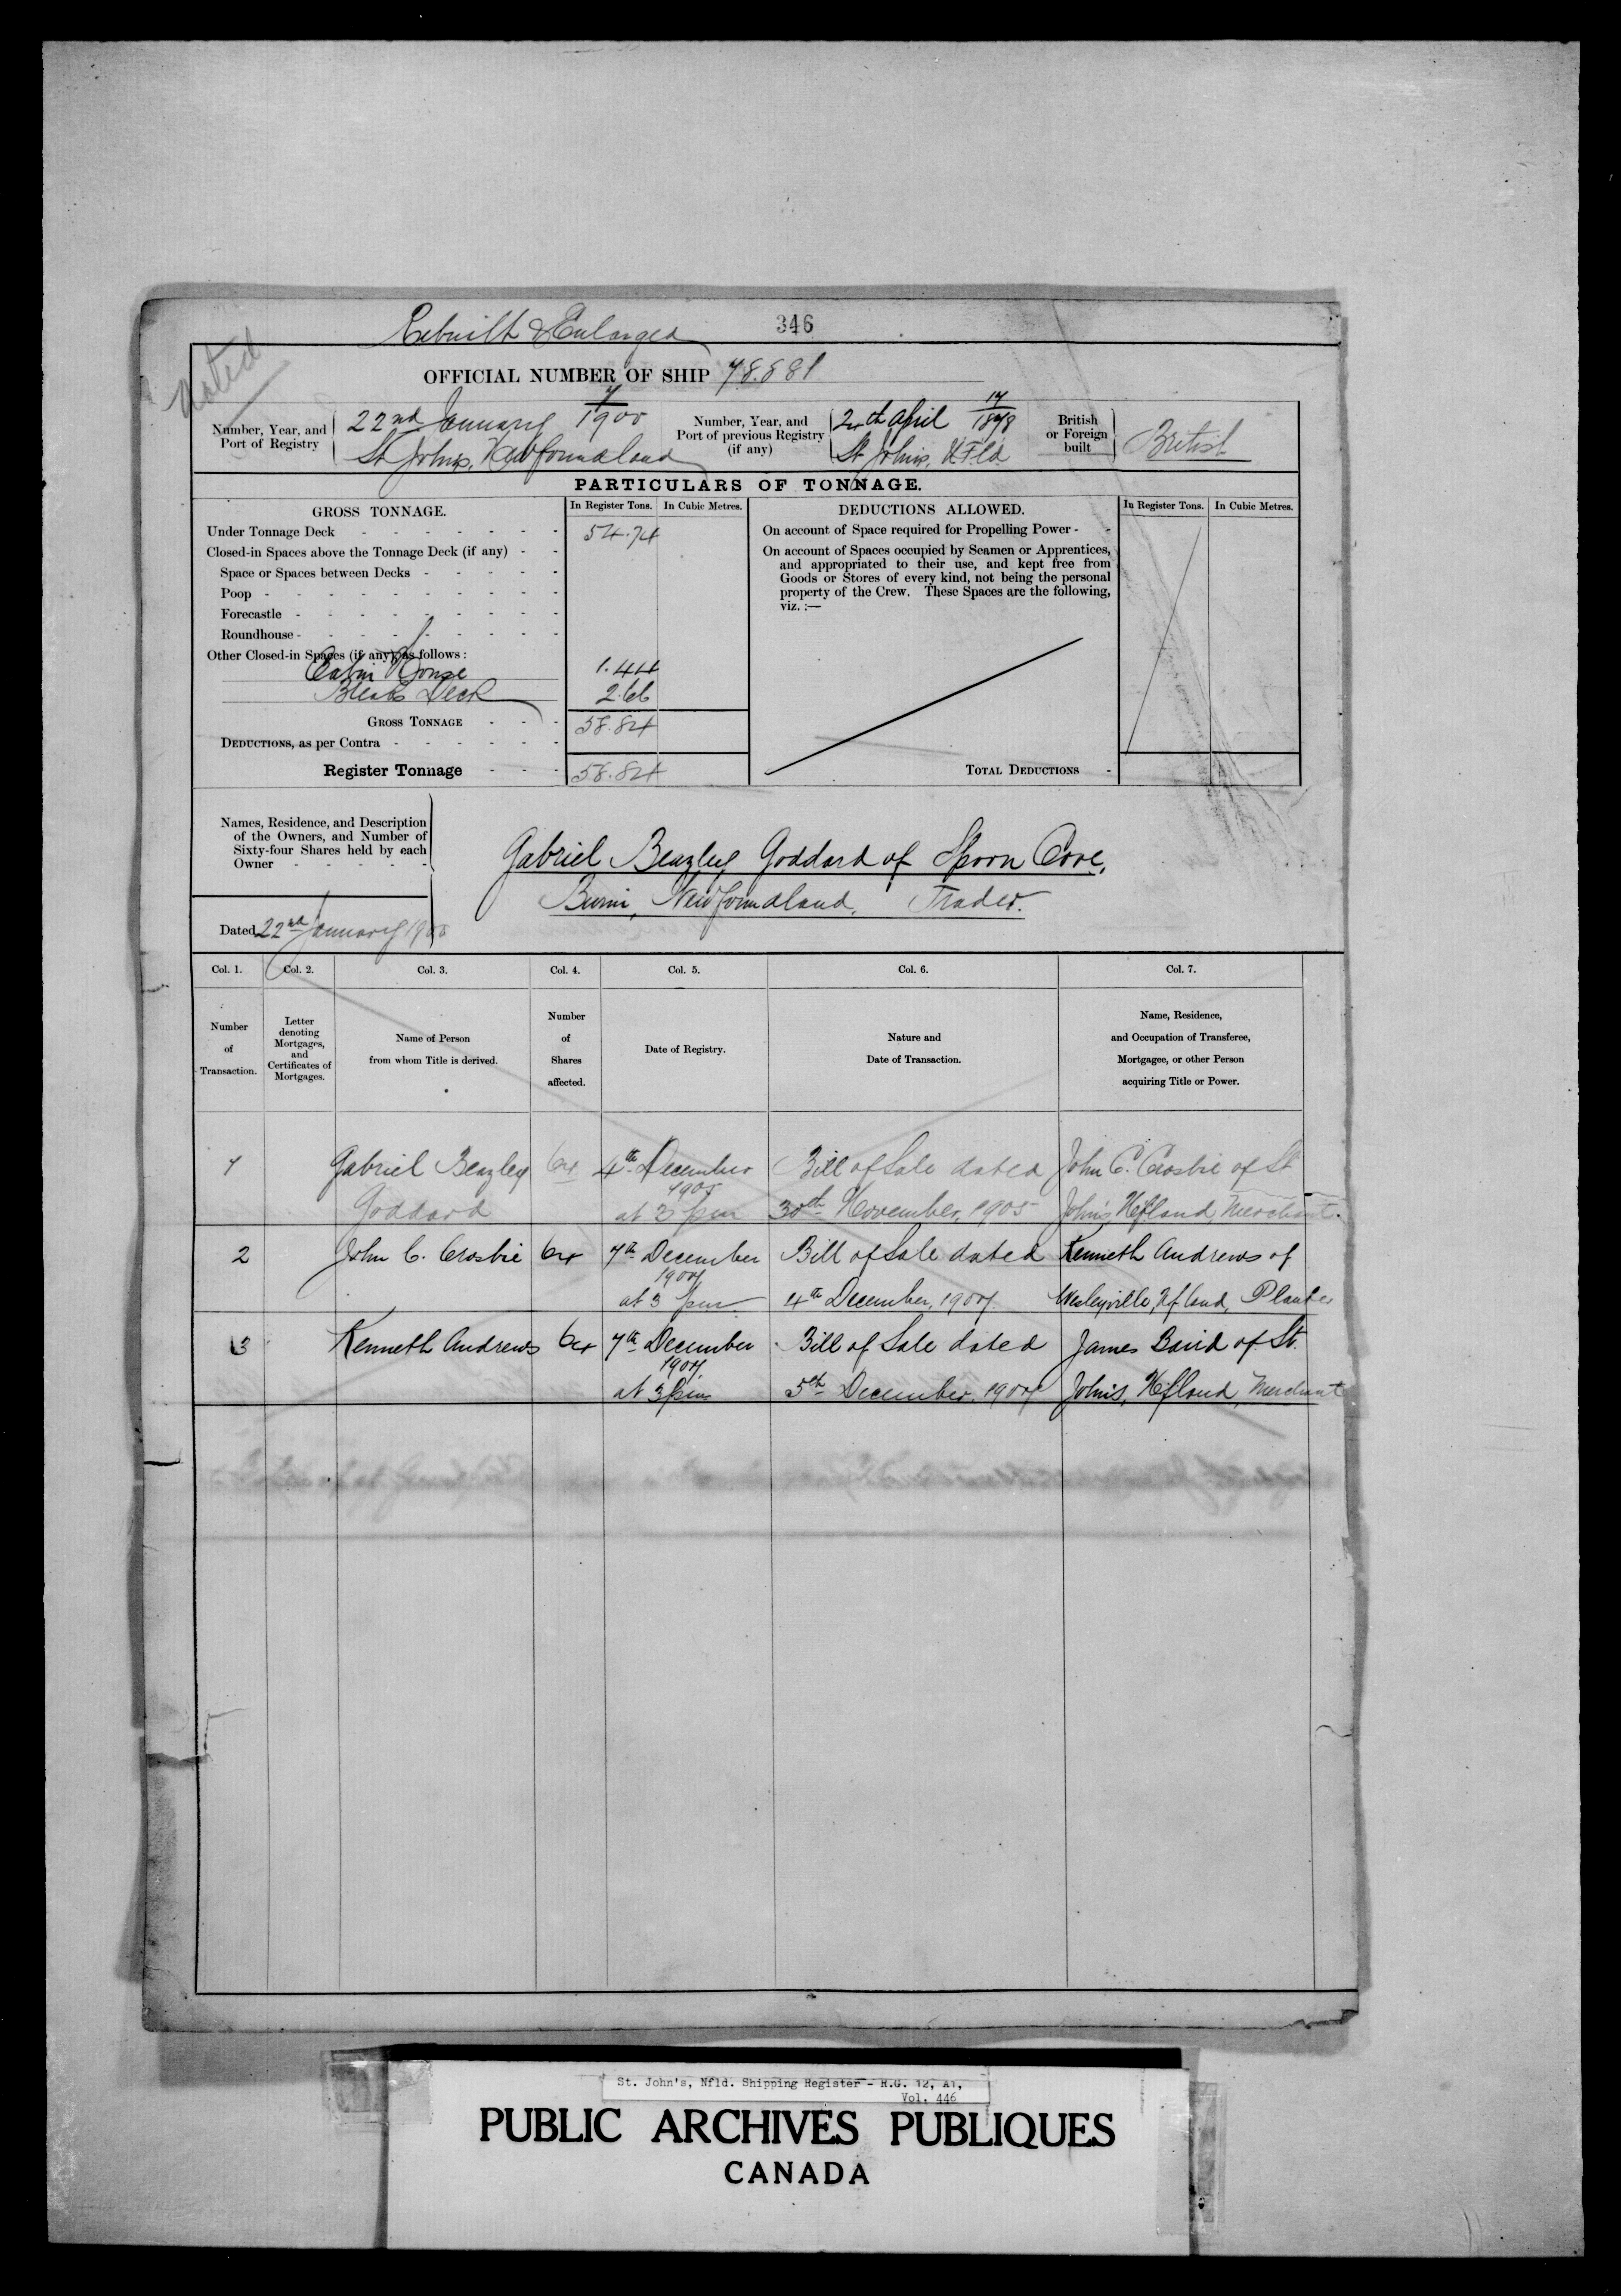 Rebuilt & Enlarged
346
Noted
OFFICIAL NUMBER OF SHIP 78.881
Number, Year, and Port of Registry
22nd January 7/1900
St John's, Newfoundland
Number, Year, and Port of previous Registry (if any)
April 17/1878
St John's, N.F.ld
British or Foreign built
British
PARTICULARS OF TONNAGE.
GROSS TONNAGE.
In Register Tons.
In Cubic Metres.
DEDUCTIONS ALLOWED.
In Register Tons.
In Cubic Metres.
Under Tonnage Deck - - - - - - - 54.74
Closed-in Spaces above the Tonnage Deck (if any) - -
Space or Spaces between Decks - - - - -
Poop - - - - - - - - - -
Forecastle - - - - - - - - -
Roundhouse - - - - - - - - -
Other Closed-in Spaces (if any), as follows:
Cabin House 1.44
Break Deck 2.66
GROSS TONNAGE - - - 58.84
DEDUCTIONS, as per Contra - - - - - -
Register Tonnage - - - 58.84
On account of Space required for Propelling Power - -
On account of Spaces occupied by Seamen or Apprentices,
and appropriated to their use, and kept free from
Goods or Stores of every kind, not being the personal
property of the Crew. These Spaces are the following,
viz. :—
TOTAL DEDUCTIONS -
Names, Residence, and Description
of the Owners, and Number of
Sixty-four Shares held by each
Owner - - - - -
Gabriel Beazley Goddard of Spoon Cove,
Burin, Newfoundland, Trader.
Dated 22nd January 1900
Col. 1. Col. 2. Col. 3. Col. 4. Col. 5. Col. 6. Col. 7.
Number of Transaction.
Letter denoting Mortgages, and Certificates of Mortgages.
Name of Person from whom Title is derived.
Number of Shares affected.
Date of Registry.
Nature and Date of Transaction.
Name, Residence, and Occupation of Transferee, Mortgagee, or other Person acquiring Title or Power.
1 Gabriel Beazley 64 4th December Bill of Sale dated John C. Crosbie of St
1905
Goddard at 3 pm 30th November, 1905 John's, Nfland, Merchant.
2 John C. Crosbie 64 7th December Bill of Sale dated Kenneth Andrews of
1907
at 3 pm 4th December, 1907 Wesleyville, Nfland, Planter
3 Kenneth Andrews 64 7th December Bill of Sale dated James Baird of St.
1907
at 3 pm 5th December, 1907 John's, Nfland, Merchant
St. John's, Nfld. Shipping Register - R.G. 12, A1,
Vol. 446
PUBLIC ARCHIVES PUBLIQUES
CANADA